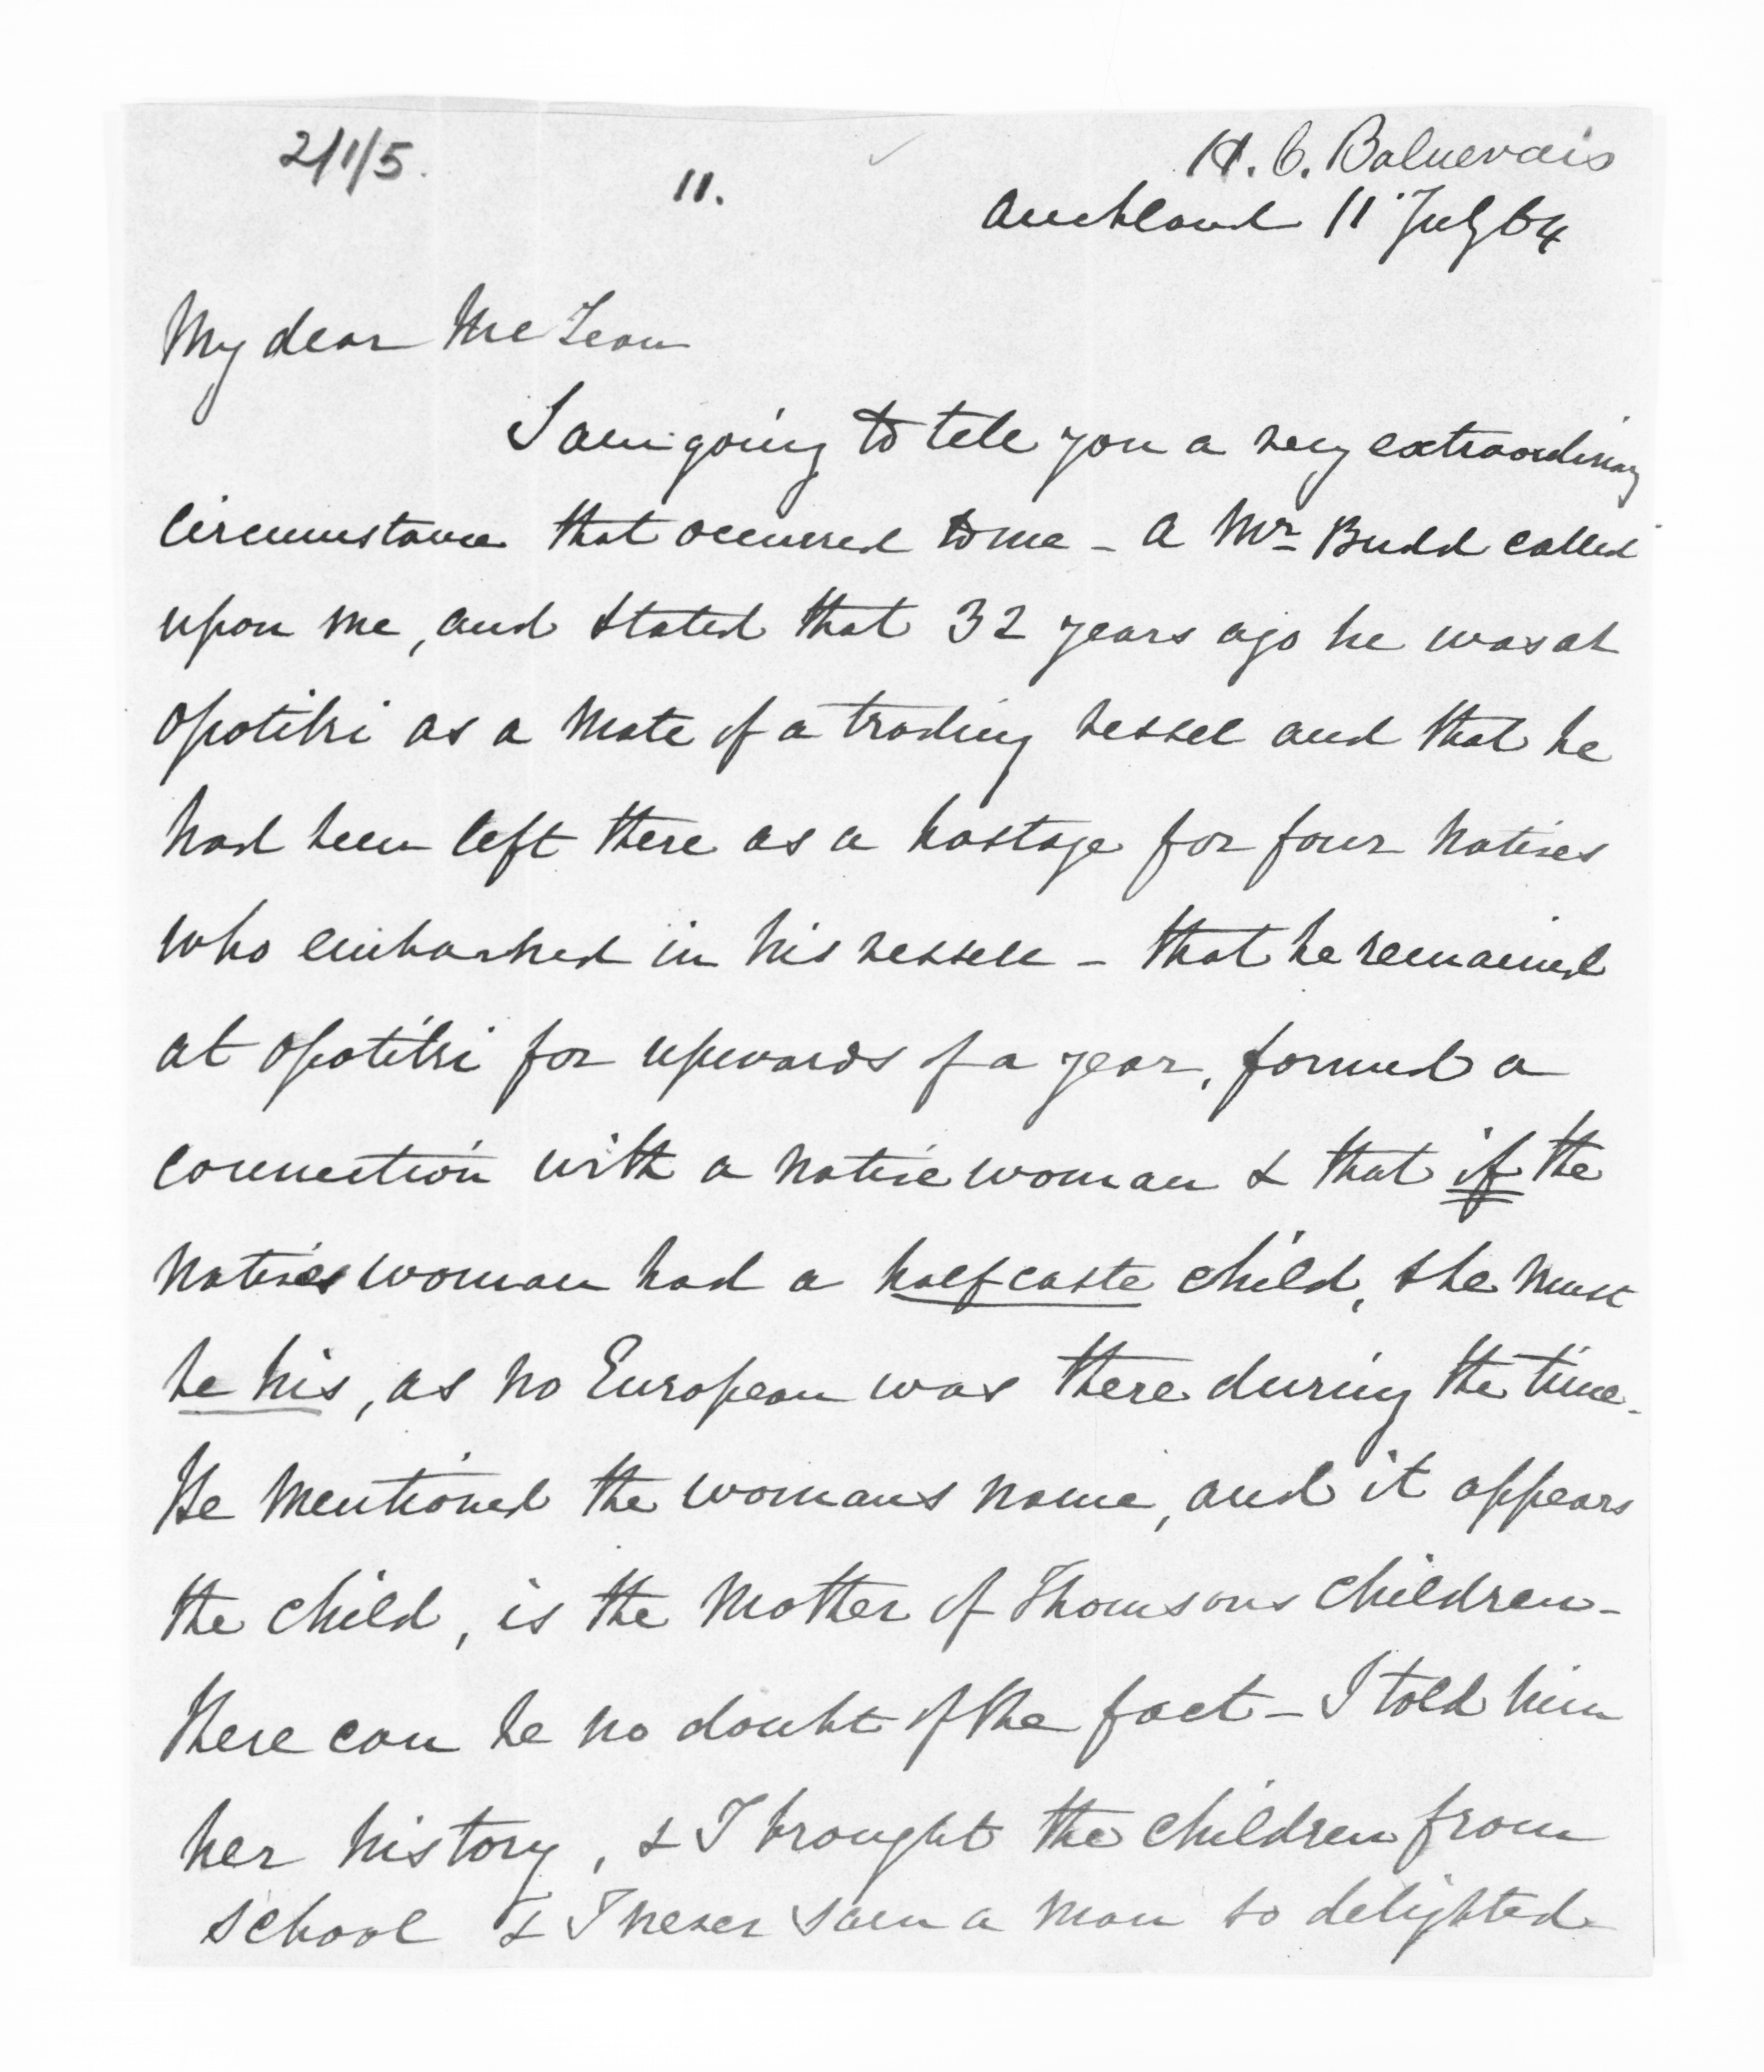 2/1/5.
11.
H. C. Balneavis
Auckland 11 July 64
My dear McLean
I am going to tell you a very extraordinary
circumstance that occurred to me - A Mr Budd called
upon me, and stated that 32 years ago he was at
Opotiki as a mate of a trading vessel and that he
had been left there as a hostage for four natives
who embarked in his vessell - that he remained
at Opotiki for upwards of a year, formed a
connection with a native woman & that if the
native woman had a half caste child, she must
be his, as no European was there during the time.
He mentioned the womans name, and it appears
the child, is the mother of Thomsons children -
There can be no doubt of the fact - I told him
her history, & I brought the children from
school & I never saw a man so delighted